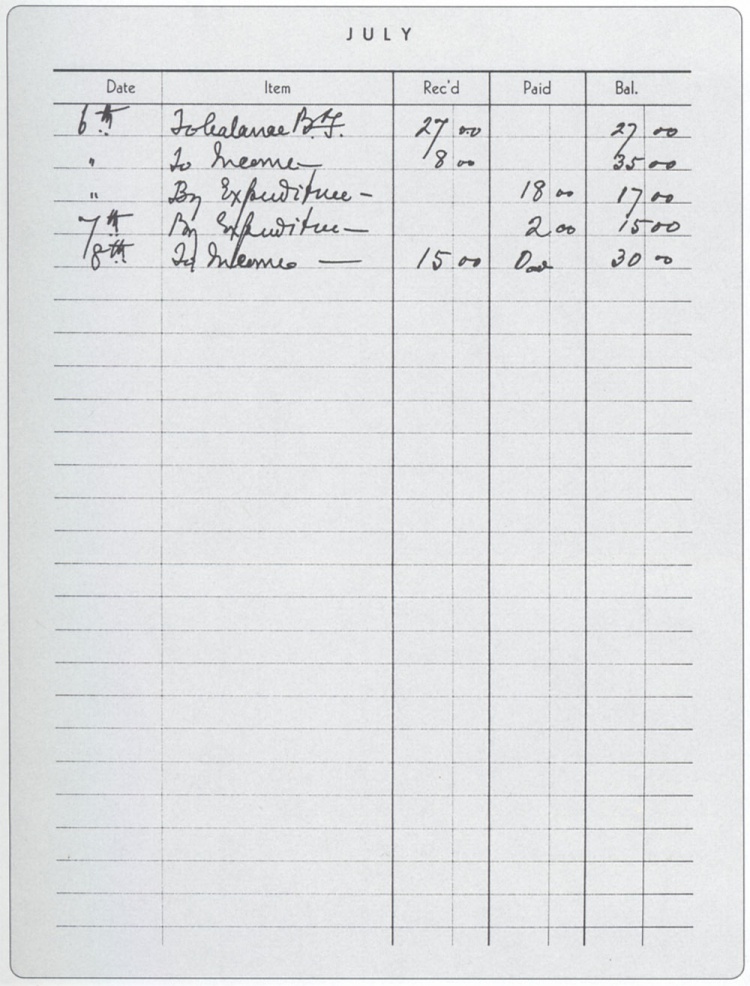 JULY
Date Item Rec'd Paid Bal.
6th To balance B/f. 27 00 27 00
" To Income — 8 00 35 00
" By Expenditure — 18 00 17 00
7th By Expenditure — 2 00 15 00
8th To Income — 15 00 0 00 30 00